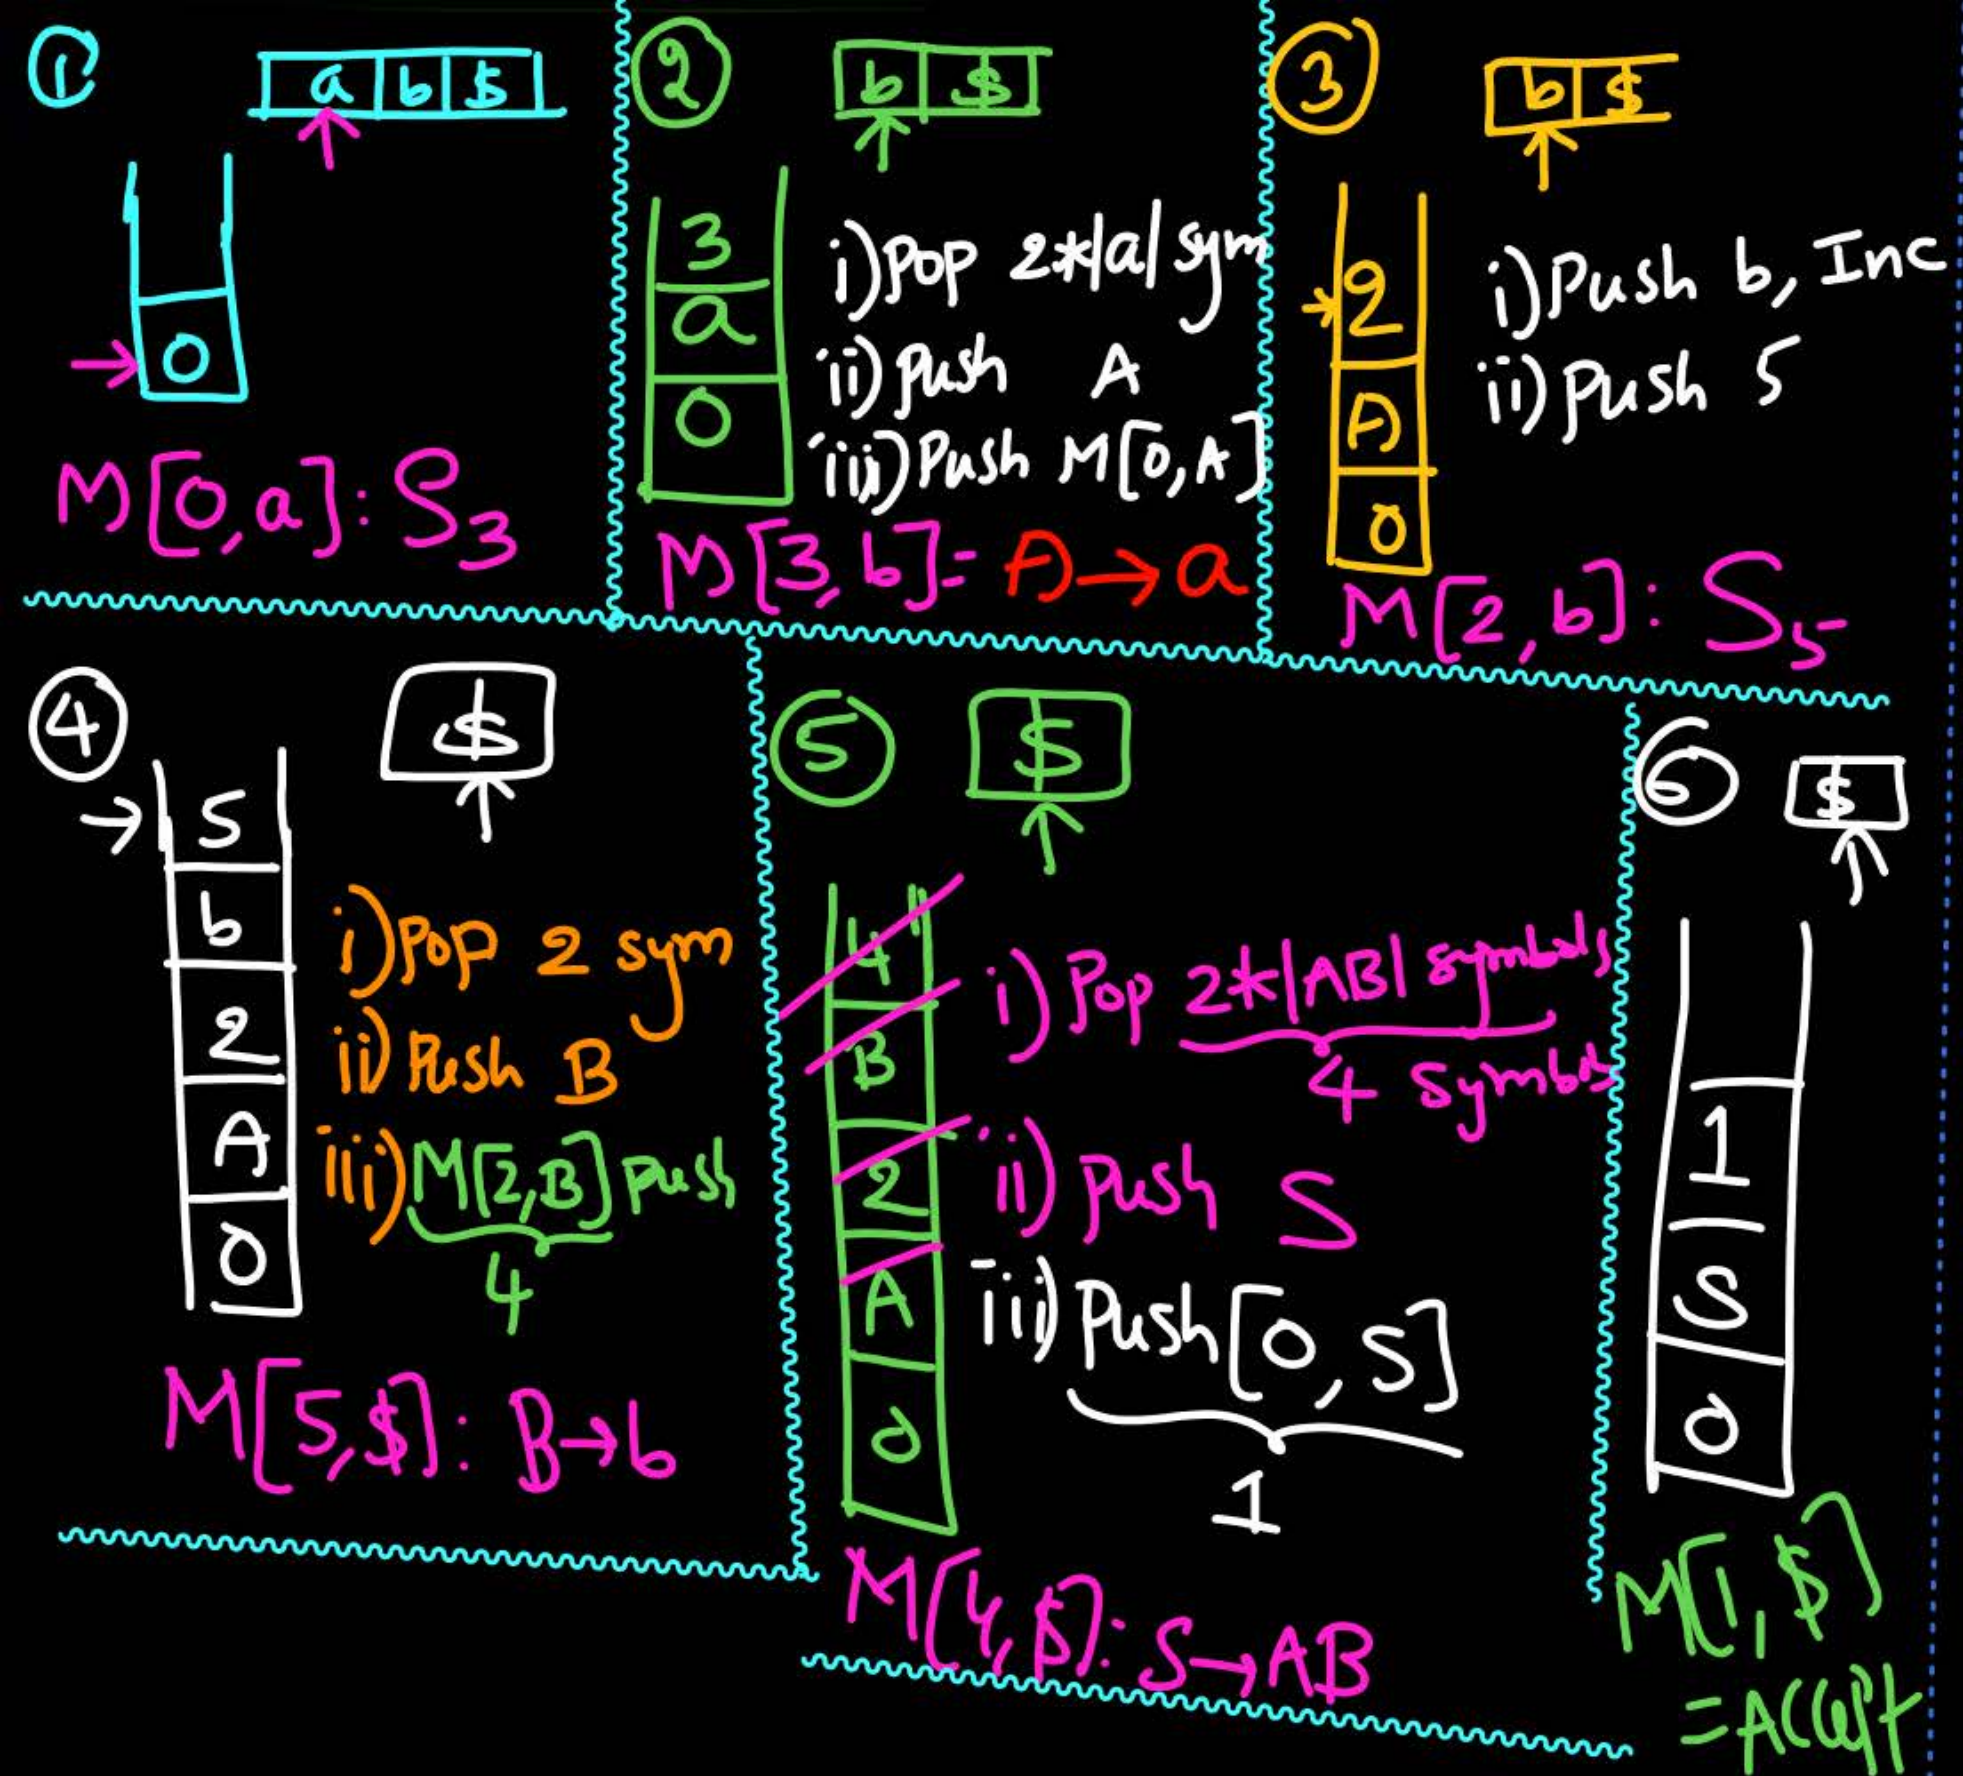 1
a b $
0
M[0,a]: S3
2
b $
3
a
0
i) Pop 2*|a| sym
ii) Push A
iii) Push M[0,A]
M[3,b]= A→a
3
b $
2
A
0
i) Push b, Inc
ii) Push 5
M[2,b]: S5
4
$
5
b
2
A
0
i) Pop 2 sym
ii) Push B
iii) M[2,B] push
4
M[5,$]: B→b
5
$
4
B
2
A
0
i) Pop 2*|AB| symbols
4 Symbols
ii) push S
iii) Push [0,S]
1
M[4,$]: S→AB
6
$
1
S
0
M[1,$]
=Accept